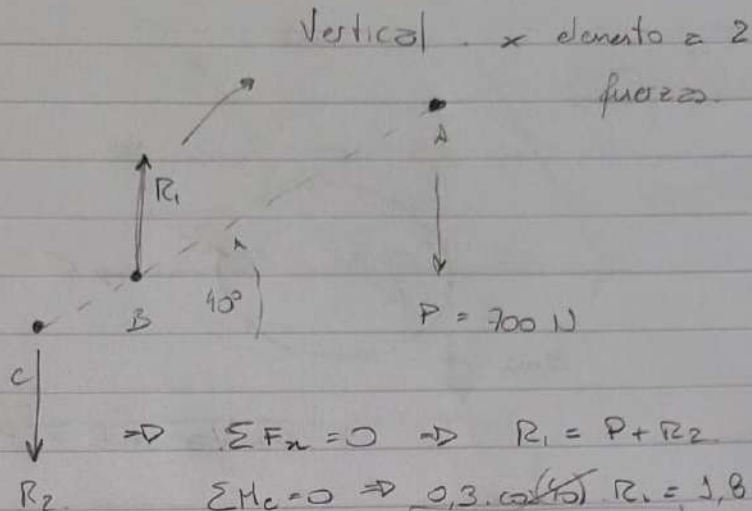 Vertical . x elemento a 2
fuerzas.
A
R₁
40°
B
P = 700 N
C
⇒ ΣFₓ = 0 ⇒ R₁ = P + R₂
R₂ ΣM_c = 0 ⇒ 0,3 . cos(40) R₁ = 1,8